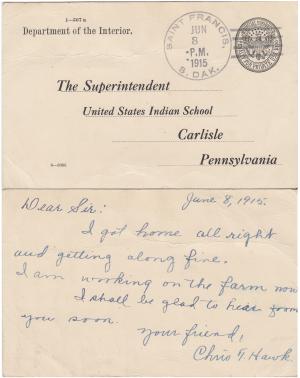 1-507 a
Department of the Interior.
SAINT FRANCIS,
JUN
8
P.M.
1915
S. DAK.
The Superintendent
United States Indian School
Carlisle
Pennsylvania
June 8, 1915.
Dear Sir:
I got home all right
and getting along fine.
I am working on the farm now
I shall be glad to hear from
you soon.
Your friend,
Chris T. Hawk